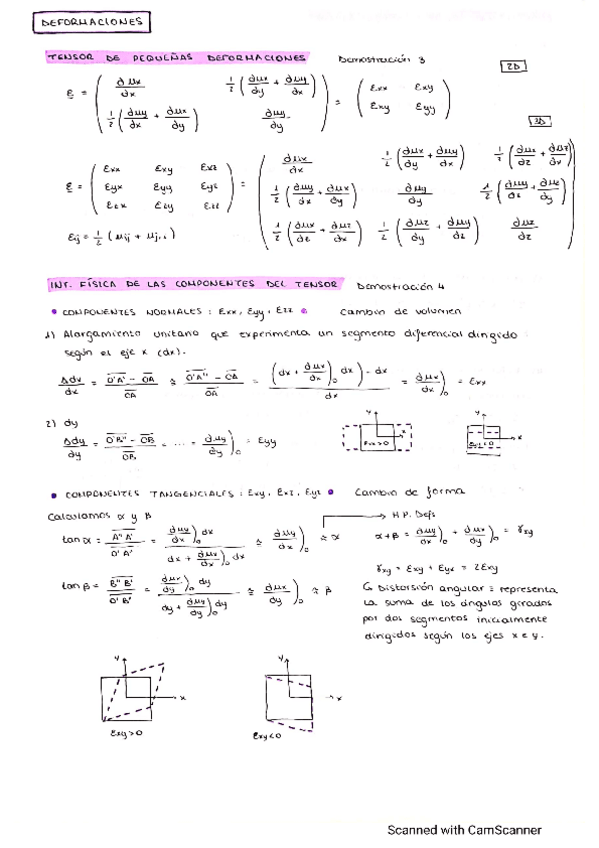 DEFORMACIONES
TENSOR DE PEQUEÑAS DEFORMACIONES Demostración 3
2D
ε = ( ∂ux/∂x 1/2(∂ux/∂y + ∂uy/∂x) ; 1/2(∂uy/∂x + ∂ux/∂y) ∂uy/∂y ) = ( εxx εxy ; εxy εyy )
3D
ε = ( εxx εxy εxz ; εyx εyy εyz ; εzx εzy εzz ) = ( ∂ux/∂x 1/2(∂ux/∂y + ∂uy/∂x) 1/2(∂uz/∂z + ∂uz/∂x) ; 1/2(∂uy/∂x + ∂ux/∂y) ∂uy/∂y 1/2(∂uy/∂z + ∂uz/∂y) ; 1/2(∂ux/∂z + ∂uz/∂x) 1/2(∂uz/∂y + ∂uy/∂z) ∂uz/∂z )
εij = 1/2 (ui,j + uj,i)
INT. FÍSICA DE LAS COMPONENTES DEL TENSOR Demostración 4
• COMPONENTES NORMALES : εxx, εyy, εzz • Cambio de volumen
1) Alargamiento unitario que experimenta un segmento diferencial dirigido
según el eje x (dx).
Δdx/dx = (O'A' - OA)/OA ≅ (O'A'' - OA)/OA = ((dx + ∂ux/∂x)₀ dx) - dx)/dx = ∂ux/∂x)₀ = εxx
2) dy
Δdy/dy = (O'B'' - OB)/OB = ... = ∂uy/∂y)₀ = εyy
y
x
εxx > 0
y
x
• COMPONENTES TANGENCIALES : εxy, εxz, εyz • Cambio de forma
Calculamos α y β
→ H.P. Defs
tan α = A''A'/O'A' = ∂uy/∂x)₀ dx / (dx + ∂ux/∂x)₀ dx) ≅ ∂uy/∂x)₀ ≅ α
α+β = ∂uy/∂x)₀ + ∂ux/∂y)₀ = γxy
γxy = εxy + εyx = 2εxy
tan β = B''B'/O'B' = ∂ux/∂y)₀ dy / (dy + ∂uy/∂y)₀ dy) ≅ ∂ux/∂y)₀ ≅ β
Distorsión angular = representa
la suma de los ángulos girados
por dos segmentos inicialmente
dirigidos según los ejes x e y.
y
x
εxy > 0
y
x
εxy < 0
Scanned with CamScanner